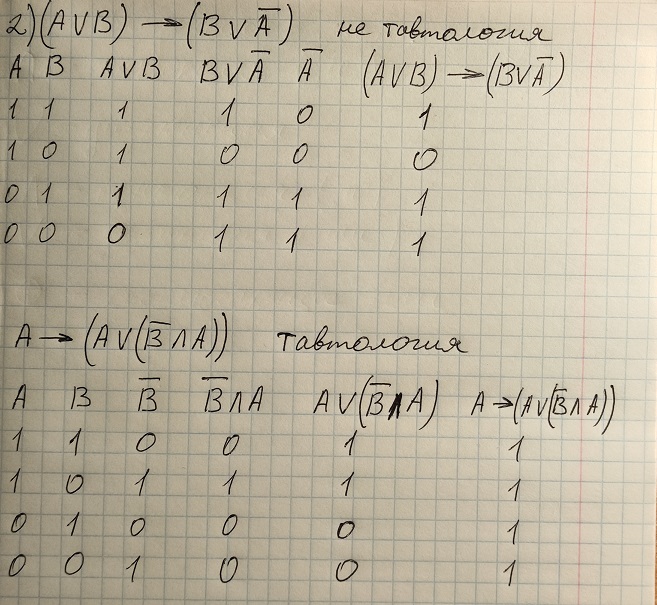 2) (A∨B) → (B∨A̅) не тавтология
A B A∨B B∨A̅ A̅ (A∨B) → (B∨A̅)
1 1 1 1 0 1
1 0 1 0 0 0
0 1 1 1 1 1
0 0 0 1 1 1
A → (A∨(B̅∧A)) тавтология
A B B̅ B̅∧A A∨(B̅∧A) A→(A∨(B̅∧A))
1 1 0 0 1 1
1 0 1 1 1 1
0 1 0 0 0 1
0 0 1 0 0 1